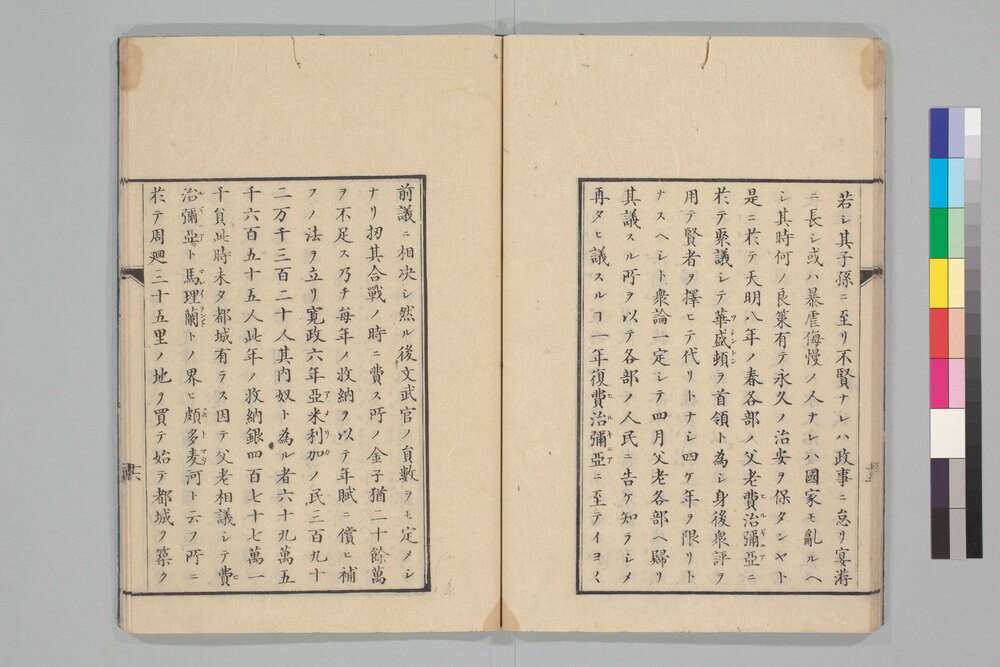 若シ其子孫ニ至リ不賢ナレハ政事ニ怠リ宴游
ニ長シ或ハ暴虐侮慢ノ人ナレハ國家モ亂ルヘ
シ其時何ノ良策有テ永久ノ治安ヲ保タンヤト
是ニ於テ天明八年ノ春各部ノ父老費治彌亞ニ
於テ聚議シテ華盛頓ヲ首領ト為シ身後衆評ヲ
用テ賢者ヲ擇ヒテ代リトナシ四ケ年ヲ限リト
ナスヘシト衆論一定シテ四月父老各部ヘ歸リ
其議スル所ヲ以テ各部ノ人民ニ告ケ知ラシメ
再タヒ議スルヿ一年復費治彌亞ニ至テイヨく
前議ニ相决シ然ル後文武官ノ負數ヲモ定メシ
ナリ扨其合戰ノ時ニ費ス所ノ金子猶二十餘萬
ヲ不足ス乃チ每年ノ收納ヲ以テ年賦ニ償ヒ補
フノ法ヲ立リ寛政六年亞米利加ノ民三百九十
二万千三百二十人其内奴ト為ル者六十九萬五
千六百五十五人此年ノ收納銀四百七十七萬一
千負此時未タ都城有ラス因テ父老相議シテ費
治彌亞ト馬理蘭トノ界ヒ頗多麦河ト云フ所ニ
於テ周廻三十五里ノ地ヲ買テ始テ都城ヲ築ク